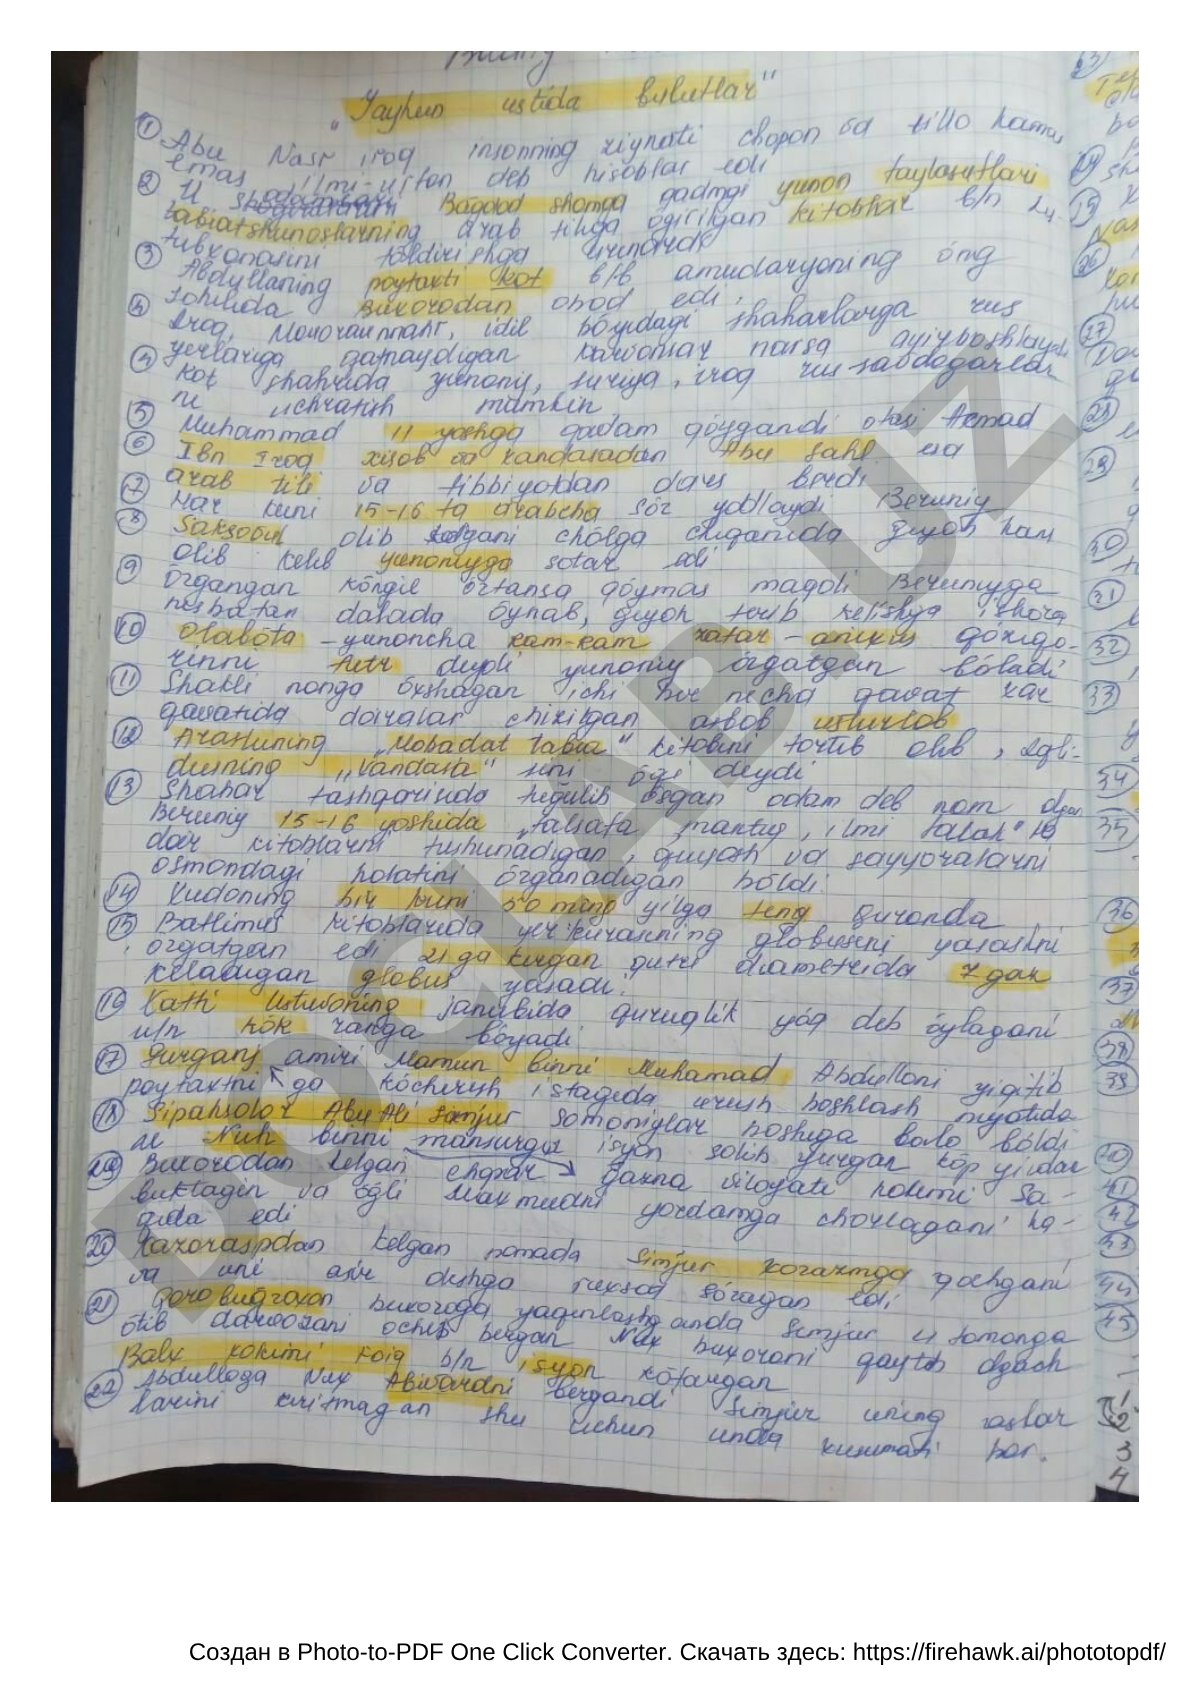 "Jayhun ustida bulutlar"
① Abu Nasr iroq insonning ziynati chopon va tillo kamar
emas ilmi-urfon deb hisoblar edi
② U Bagdod shomga qadimgi yunon faylasuflari
tabiatshunoslarning arab tiliga ogirilgan kitoblar b/n
tubxonasini tóldirishga urunardi
③ Abdullaning poytaxti Kot b/b amudaryoning óng
sohilida Buxorodan obod edi.
④ Iroq, Movoraunnahr, idil bóyidagi shaharlarga rus
yerlariga qatnaydigan karvonlar narsa ayirboshlaydi
④ Kot shahrida yunoniy, suriya, iroq rus savdogarlar
ni uchratish mumkin
⑤ Muhammad 11 yoshga qadam qóyganda otasi Axmad
⑥ Ibn Iroq xisob va xandasadan Abu Sahl esa
arab tili va tibbiyotdan dars berdi
⑦ Har kuni 15-16 ta arabcha sóz yodlaydi Beruniy
⑧ Saksovul olib kelgani chólga chiqanida giyoh ham
olib kelib yunoniyga sotar edi
⑨ Organgan kóngil órtansa qóymas maqoli Beruniyga
nisbatan dalada óynab, giyoh terib kelishga ishora
⑩ Olabóta - yunoncha kam-kam xatar - anixus qóziqo-
rinni fetr deydi yunoniy órgatgan bóladi
⑪ Shakli nonga óxshagan ichi bir necha qavat xar
qavatida doiralar chizilgan asbob usturlob
⑫ Arastuning "Mobadat tabia" kitobini tortib olib, Eqli-
dusning "Xandasa" sini óqi deydi
⑬ Shahar tashqarisida tugulib ósgan odam deb nom olgan
Beruniy 15-16 yoshida "falsafa mantiq, ilmi falak"
dair kitoblarni tushunadigan, quyosh va sayyoralarni
osmondagi holatini órganadigan bóldi.
⑭ Xudoning bir kuni 50 ming yilga teng Quronda
⑮ Batlimus kitoblarida yer kurasining globusini yasashni
órgatgan edi 21 ga kirgan qutri diametrida 7 gaz
keladigan globus yasadi.
⑯ Xatti Ustuvoning janubida quruqlik yóq deb óylagani
u/n kók ranga bóyadi
⑰ Gurganj amiri Mamun binni Muhamad Abdulloni yiqitib
poytaxtni ga kóchirish istagida urush boshlash niyatida
⑱ Sipahsolor Abu Ali Simjur somoniylar boshiga balo bóldi
u Nuh binni mansurga isyon solib yurgan kóp yillar
⑲ Buxorodan kelgan chopar Gazna viloyati hokimi Sa-
buktagin va óģli Maxmudni yordamga chorlagani ha-
qida edi
⑳ Xazoraspdan kelgan nomada Simjur Xorazmga qochgani
va uni asir olishga ruxsad sóragan edi
㉑ Qoro bugroxon buxoroga yaqinlashganda Simjur u tomonga
ótib darvozani ochib bergan Nux buxoroni qaytib olgach
Balx xokimi Foiq b/n isyon kótargan
㉒ Abdulloga Nux Abivardni berganda Simjur uning
larini kiritmagan shu uchun unda xusumati bor.
36
37
38
39
40
41
42
43
44
45
1
2
3
4
DOCLAB.UZ
Создан в Photo-to-PDF One Click Converter. Скачать здесь: https://firehawk.ai/phototopdf/